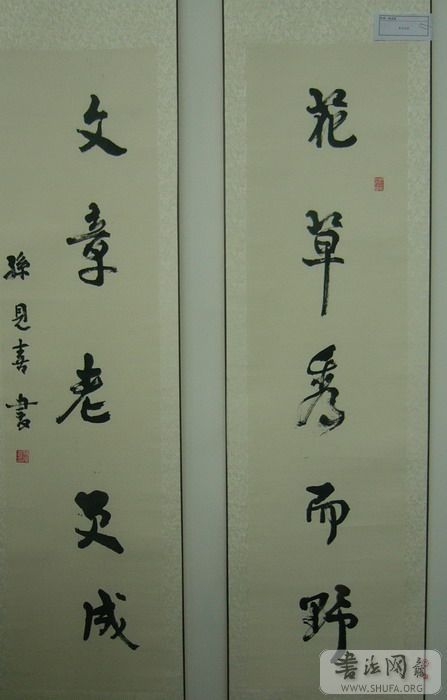 花草秀而野
文章老更成
孫見喜書
书法网
WWW.SHUFA.ORG